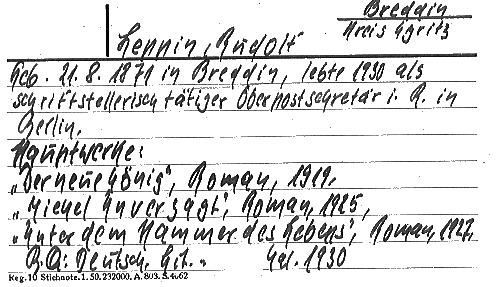 Breddin
Kreis Kyritz
Leppin, Rudolf
Geb. 21.8.1871 in Breddin, lebte 1930 als
schriftstellerisch tätiger Oberpostsekretär i. R. in
Berlin.
Hauptwerke:
„Der neue König", Roman, 1919.
„Michel Unverzagt", Roman, 1925,
„Unter dem Hammer des Lebens", Roman, 1927.
Deutsch. Lit.
1930
Reg. 10 Stichnote. 1. 50. 232000. A. 803. S. 4062